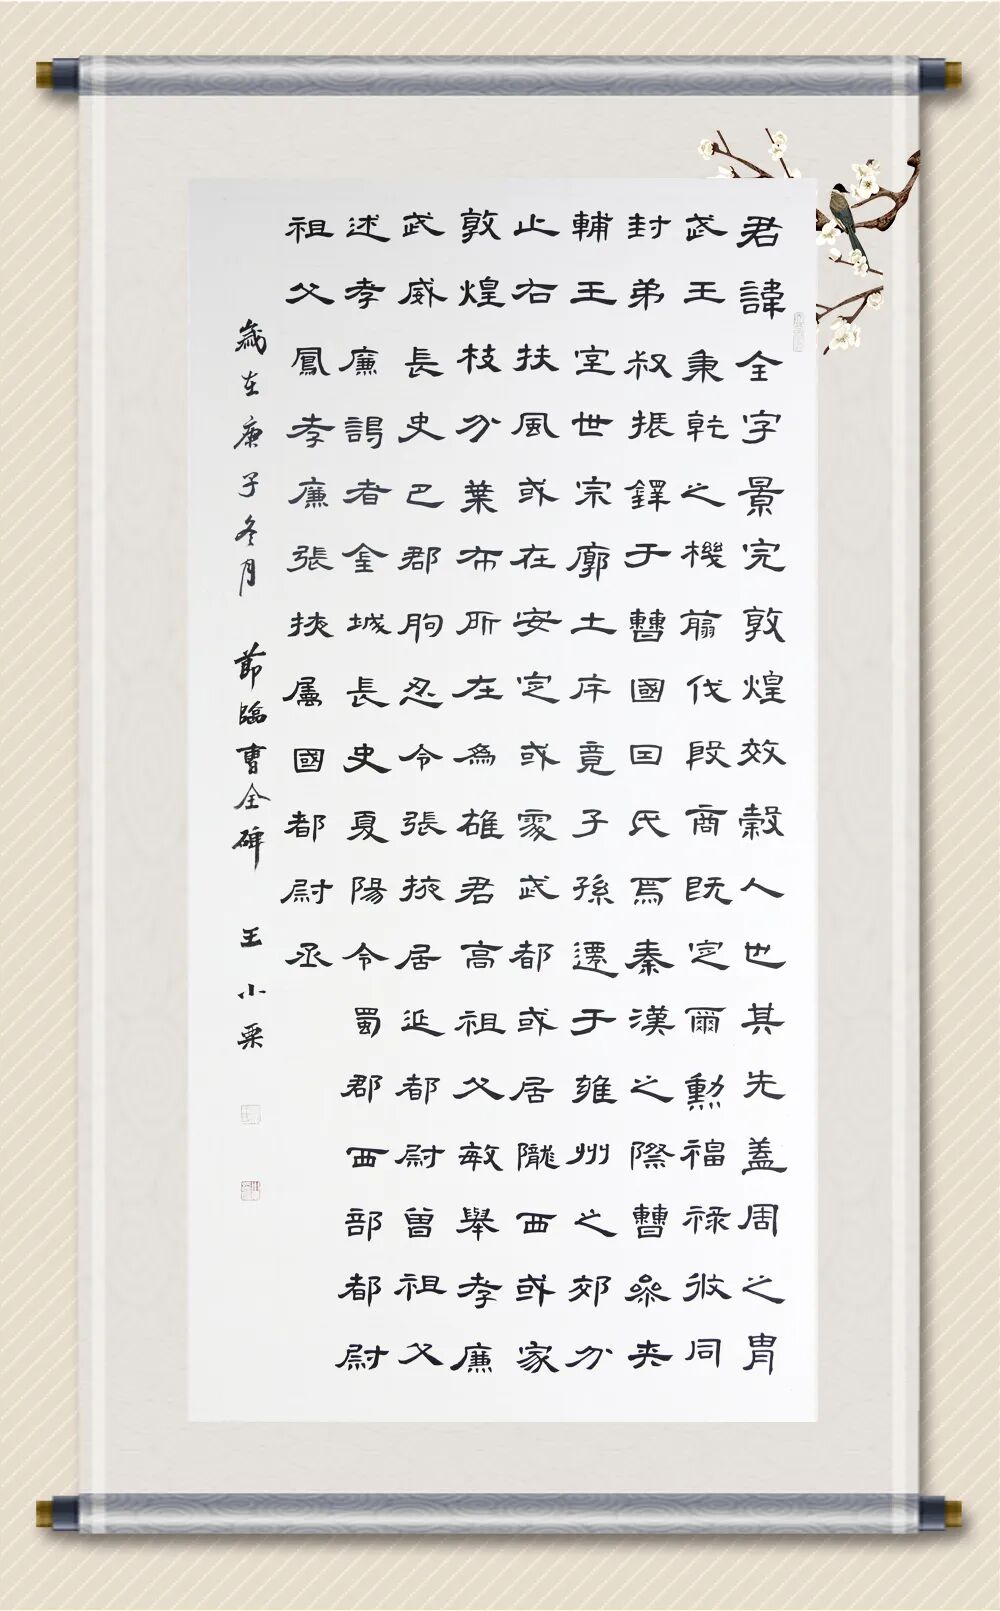 君諱全字景完敦煌效穀人也其先蓋周之胄
武王秉乾之機翦伐殷商既定爾勳福祿攸同
封弟叔振鐸于曹國因氏焉秦漢之際曹參夾
輔王室世宗廓土斥竟子孫遷于雍州之郊分
止右扶風或在安定或處武都或居隴西或家
敦煌枝分葉布所在為雄君高祖父敏舉孝廉
武威長史巴郡朐忍令張掖居延都尉曾祖父
述孝廉謁者金城長史夏陽令蜀郡西部都尉
祖父鳳孝廉張掖屬國都尉丞
歲在庚子冬月 節臨曹全碑 王小粟